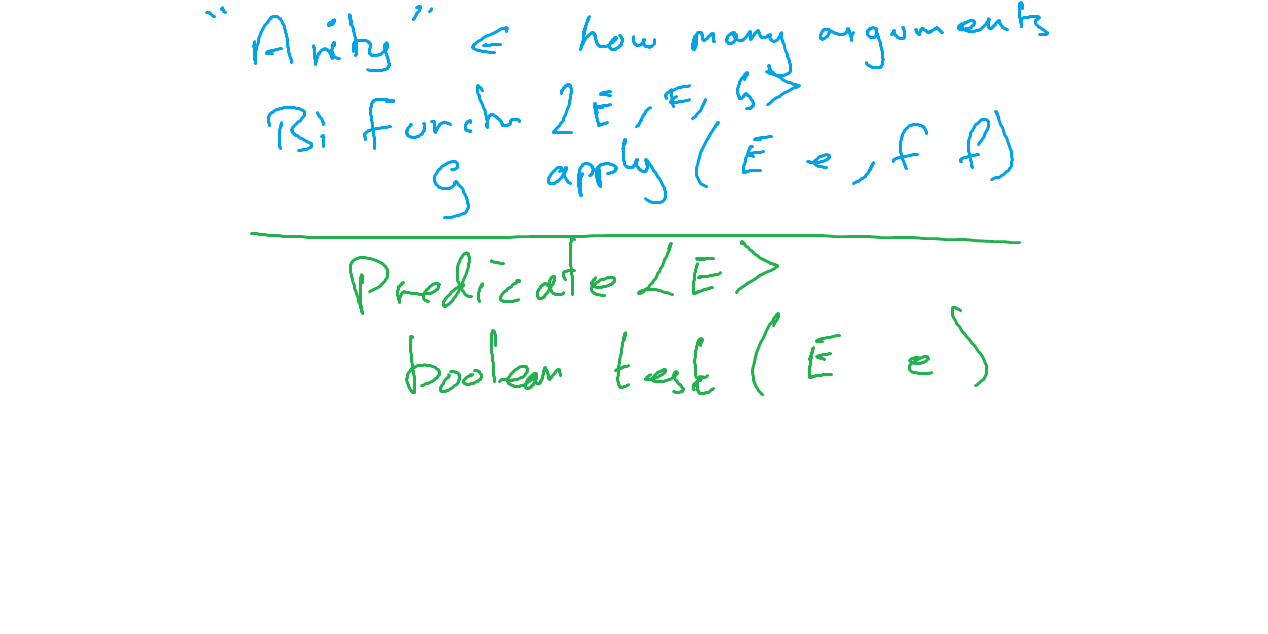 "Arity" ← how many arguments
Bi Function <E, F, G>
G apply (E e, F f)
Predicate <E>
boolean test (E e)